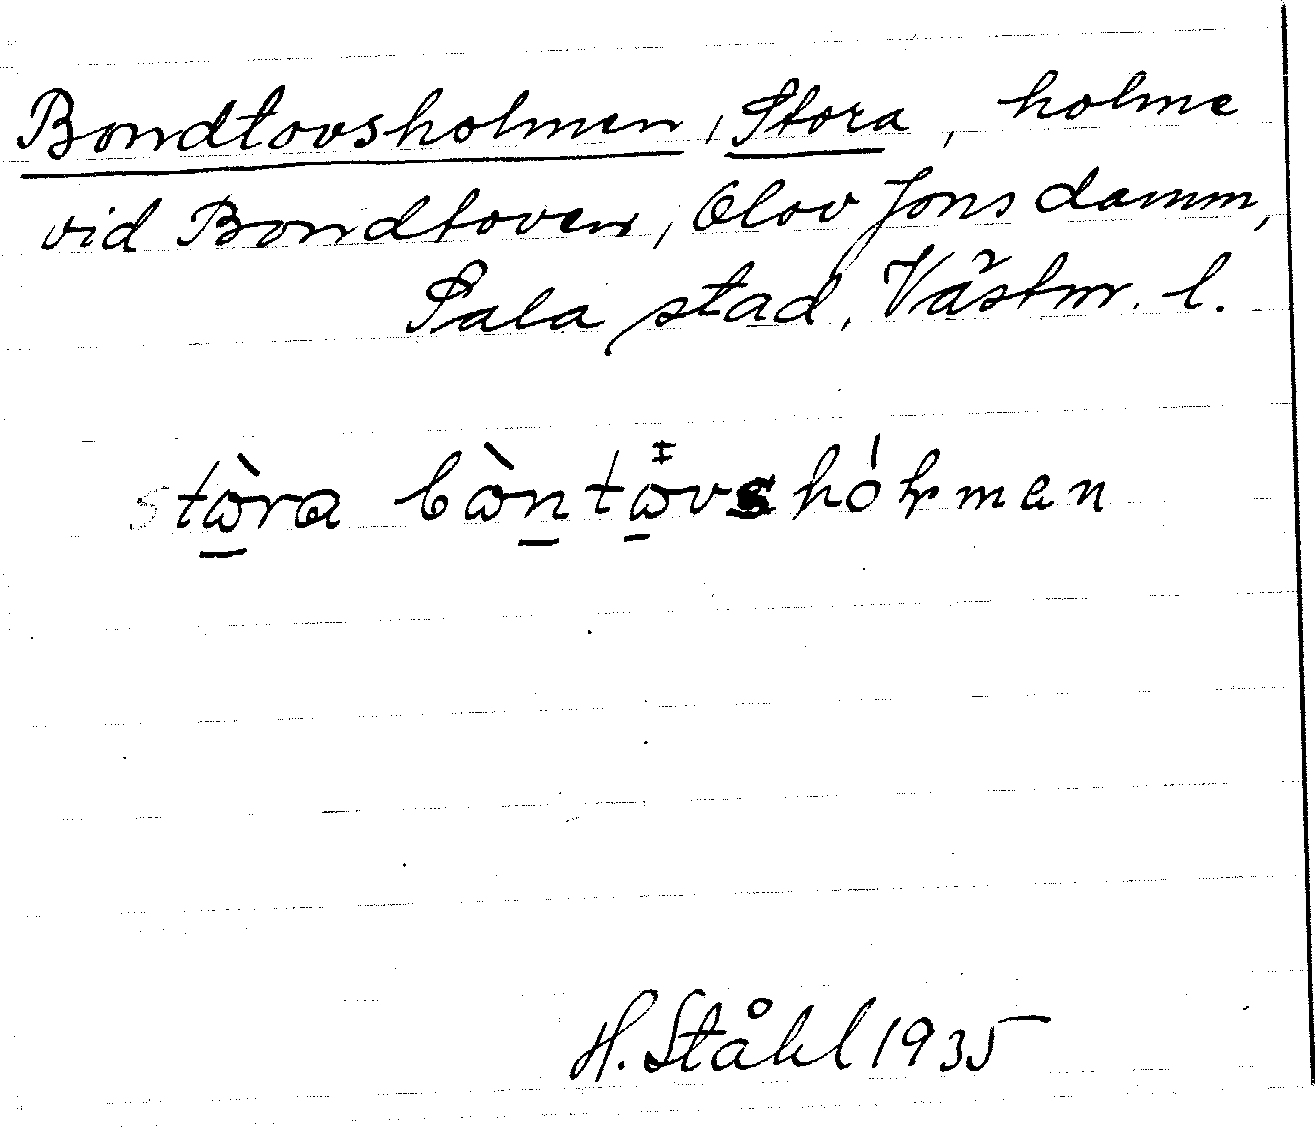 Bondtovsholmen, Stora, holme
vid Bondtoven, Olov Jons damm,
Sala stad, Västm. l.
stòra bòntovshólmen
H. Ståhl 1935